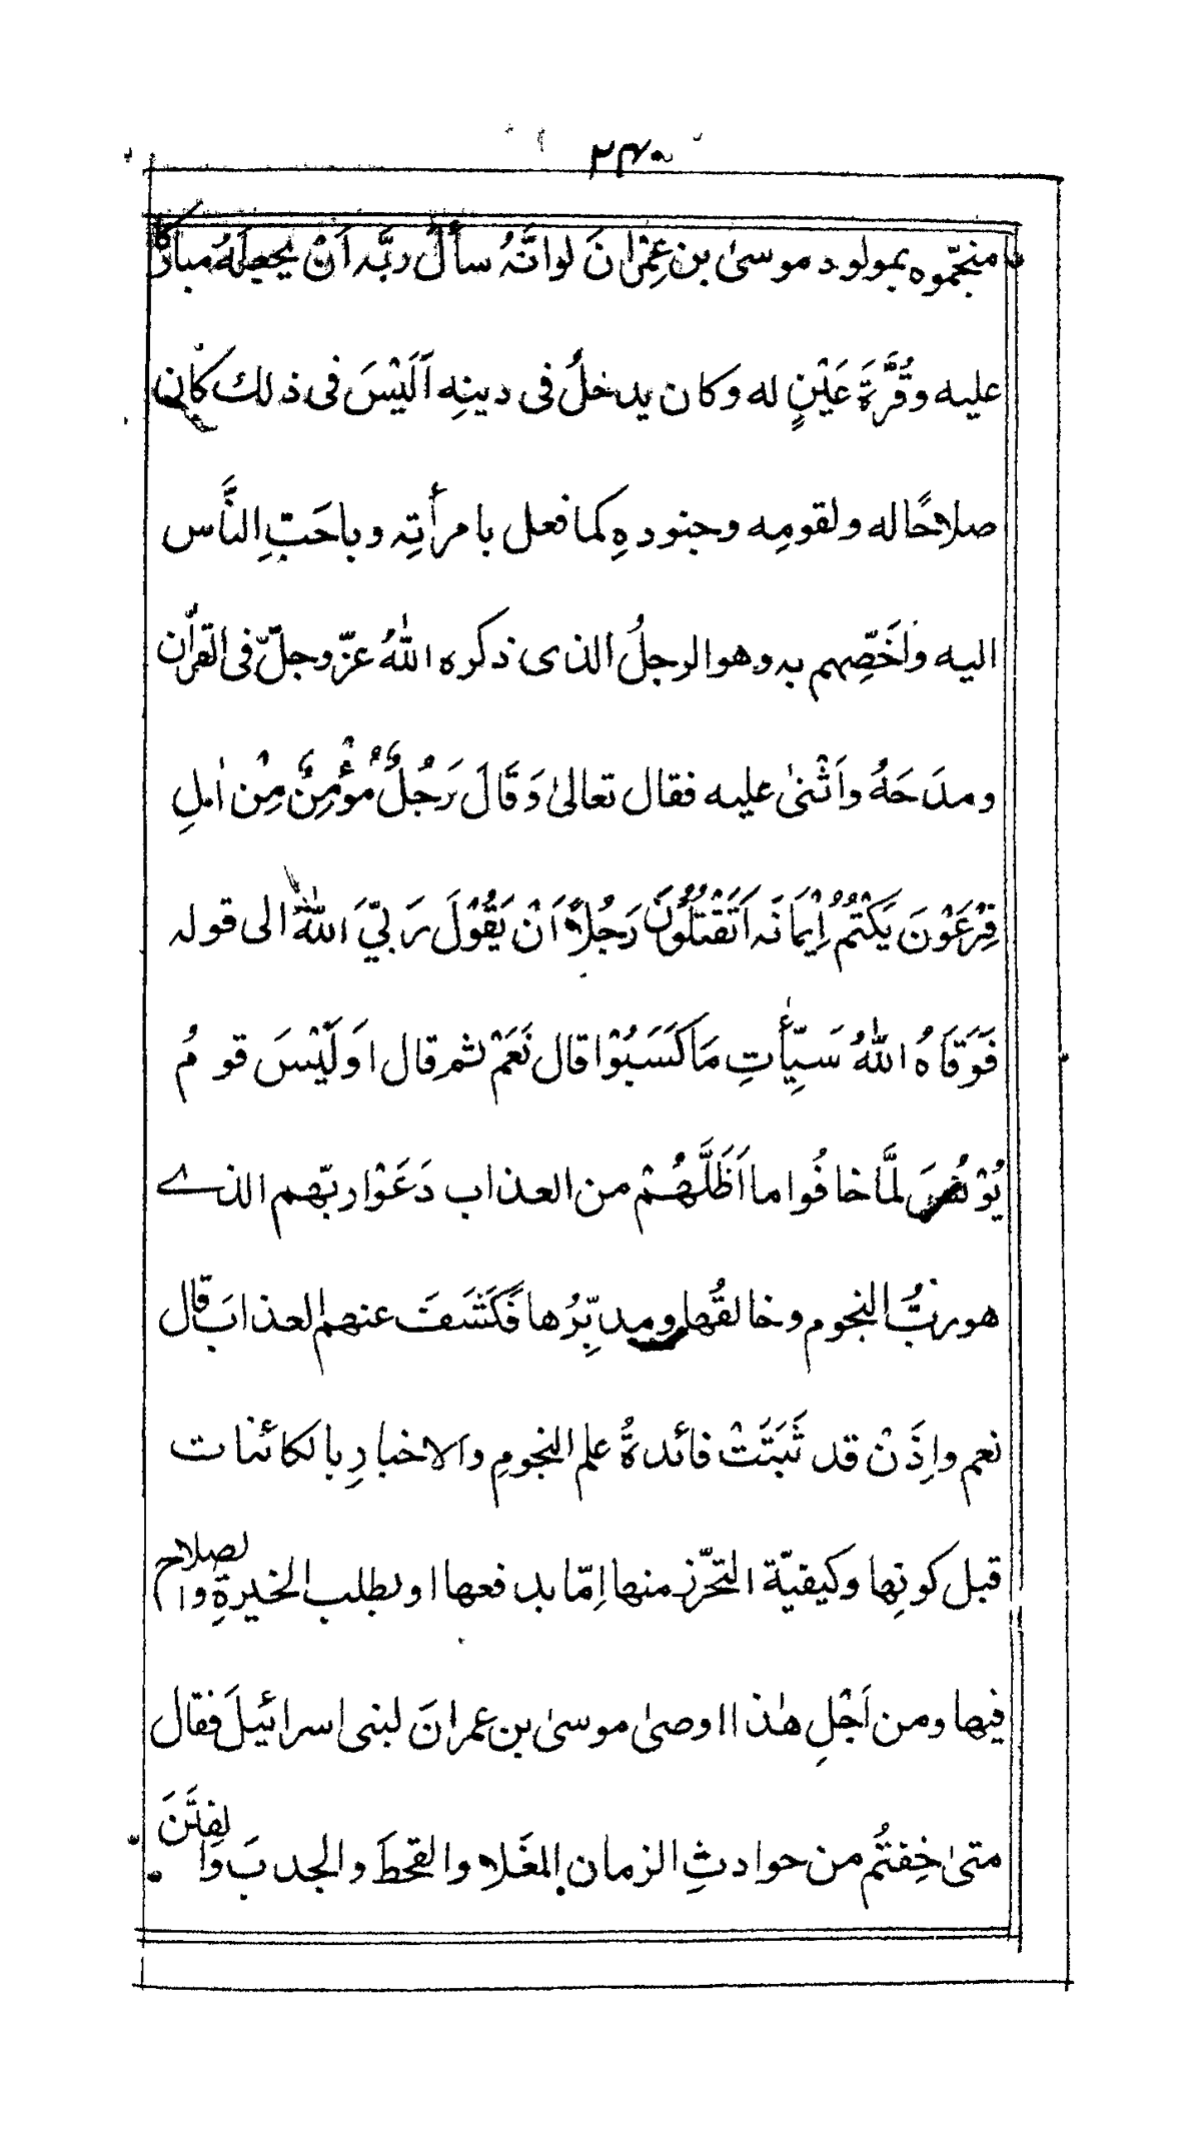 ۲۴۰
منجّموه بمولود موسىٰ بن عِمْرانَ لو انَّهُ سأل ربَّه اَنْ يجعلَهُ مباركًا
عليه وقُرَّةَ عَيْنٍ له وكان يدخلُ فى دينِه اَلَيْسَ فى ذلك كان
صلاحًا له ولقومِه وجنودهِ كما فعل بامرأتِه وباحَبِّ النَّاس
اليه واَخَصِّهم به وهو الرجلُ الذى ذكره اللهُ عزّ وجلّ فى القرآن
ومدَحَهُ واَثْنىٰ عليه فقال تعالىٰ وَقَالَ رَجُلٌ مُؤْمِنٌ مِنْ اٰلِ
فِرْعَوْنَ يَكْتُمُ اِيمَانَه اَتَقْتُلُوْنَ رَجُلاً اَنْ يَقُوْلَ رَبِّيَ اللهُ الى قوله
فَوَقَاهُ اللهُ سَيِّأٰتِ مَا كَسَبُوْا قال نَعَمْ ثم قال اَوَلَيْسَ قومُ
يُوْنُسَ لمَّا خافُوا ما اَظَلَّهُمْ من العذاب دَعَوْا ربّهم الذے
هو ربُّ النجوم وخالقُها ومدبِّرُها فَكَشَفَ عنهم العذابَ قال
نعم واِذَنْ قد ثَبَتَتْ فائدةُ علم النجومِ والاخبارِ بالكائنات
قبل كونِها وكيفيّة التحرّز منها اِمّا بدفعها او بطلب الخيرةِ والصلاح
فيها ومن اَجْلِ هٰذا اوصىٰ موسىٰ بن عمرانَ لبنى اسرائيلَ فقال
متىٰ خِفتُم من حوادثِ الزمان الغَلا والقحطَ والجدبَ والفتَنَ